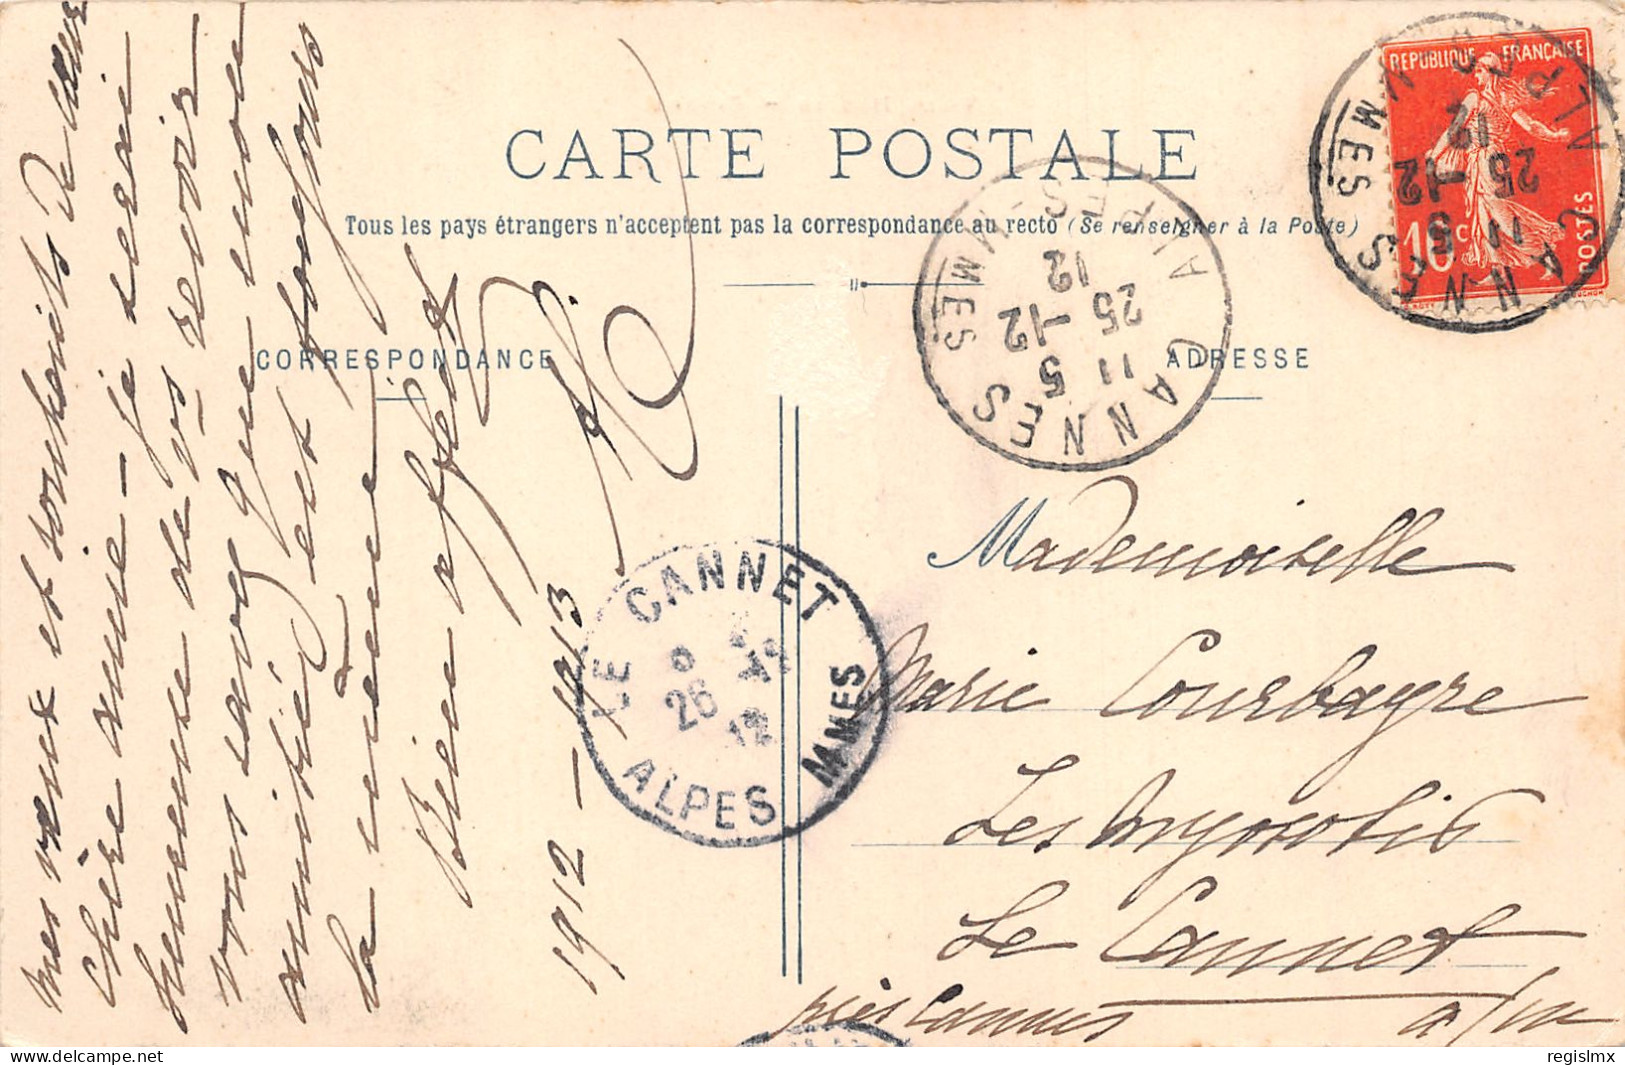 CARTE POSTALE
Tous les pays étrangers n'acceptent pas la correspondance au recto (Se renseigner à la Poste)
CORRESPONDANCE
ADRESSE
REPUBLIQUE FRANÇAISE
10c
POSTES
CANNES
ALPES-MMES
11 5
25 -12
12
CANNES
ALPES-MMES
11 5
25 -12
12
LE CANNET
26 12
12
ALPES MMES
Mes vœux et souhaits de
chère amie - je serai
heureuse de vs revoir
vous savez que mon
amitié est toujours
la même
Bien affect
1912 - 1913
Mademoiselle
Marie Courbayre
Les Myosotis
Le Cannet
près Cannes A/m
regislmx
delcampe.net